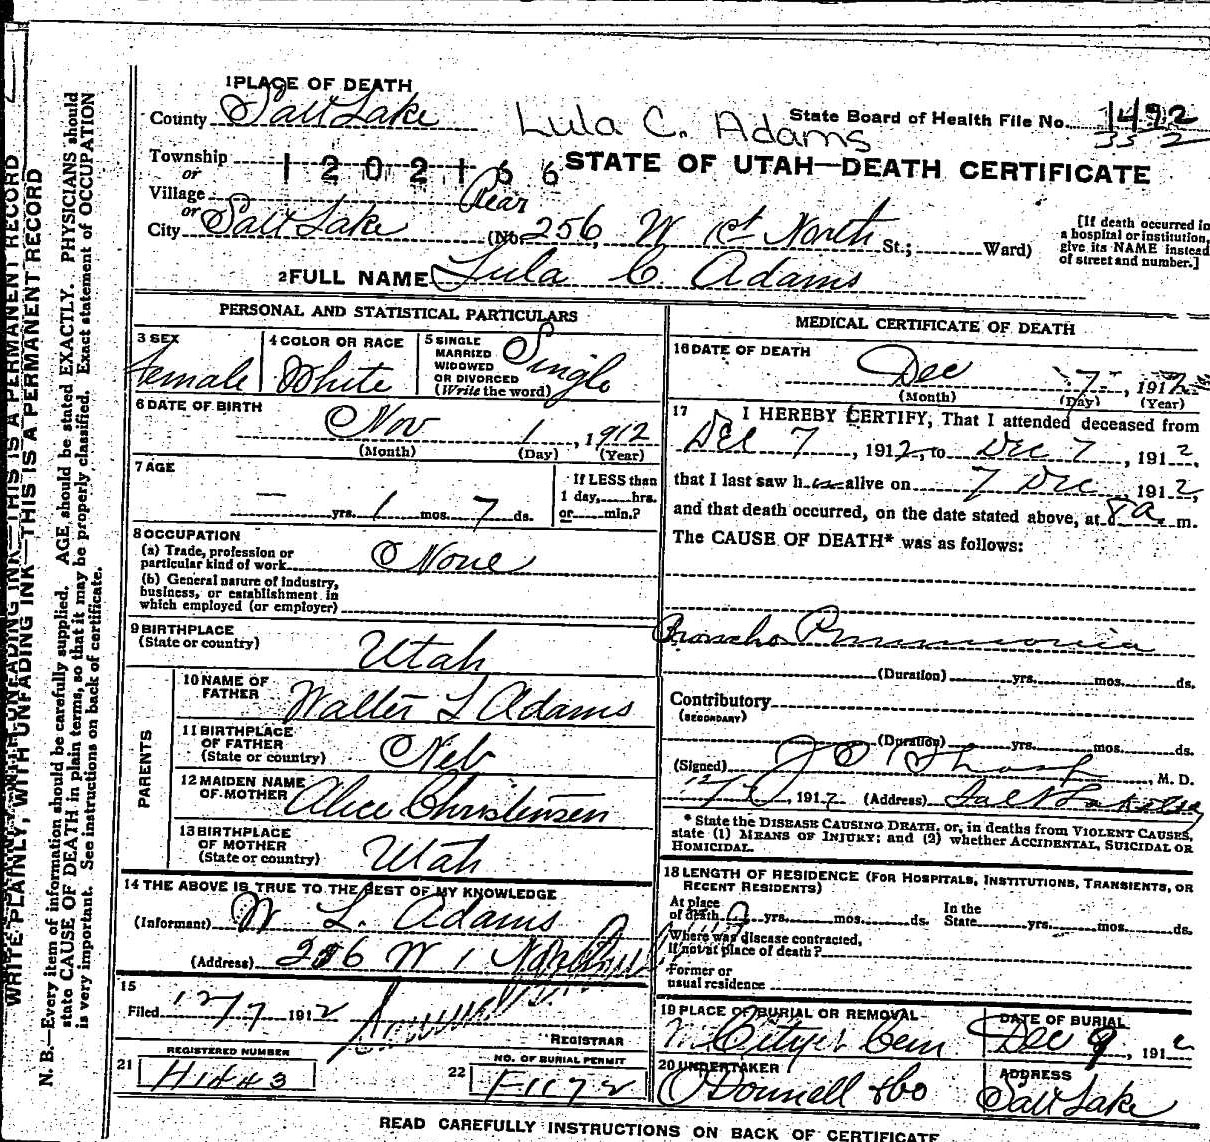 WRITE PLAINLY, WITH UNFADING INK—THIS IS A PERMANENT RECORD
N. B.—Every item of information should be carefully supplied. AGE should be stated EXACTLY. PHYSICIANS should
state CAUSE OF DEATH in plain terms, so that it may be properly classified. Exact statement of OCCUPATION
is very important. See instructions on back of certificate.
1 PLACE OF DEATH
County Salt Lake
Lula C. Adams
State Board of Health File No. 1492
Township
or
1202166
STATE OF UTAH—DEATH CERTIFICATE
Village
or
Rear
City Salt Lake (No. 256 W 1st North St.; Ward)
[If death occurred in
a hospital or institution,
give its NAME instead
of street and number.]
2 FULL NAME Lula C. Adams
PERSONAL AND STATISTICAL PARTICULARS
3 SEX Female
4 COLOR OR RACE White
5 SINGLE
MARRIED
WIDOWED
OR DIVORCED
(Write the word) Single
6 DATE OF BIRTH
Nov 1, 1912
(Month) (Day) (Year)
7 AGE
— yrs. 1 mos. 7 ds.
If LESS than
1 day, hrs.
or min.?
8 OCCUPATION
(a) Trade, profession or
particular kind of work None
(b) General nature of industry,
business, or establishment in
which employed (or employer)
9 BIRTHPLACE
(State or country) Utah
PARENTS
10 NAME OF
FATHER Walter L Adams
11 BIRTHPLACE
OF FATHER
(State or country) Neb
12 MAIDEN NAME
OF MOTHER Alice Christensen
13 BIRTHPLACE
OF MOTHER
(State or country) Utah
14 THE ABOVE IS TRUE TO THE BEST OF MY KNOWLEDGE
(Informant) W L. Adams
(Address) 256 W 1 North
15
Filed 12/7 1912
REGISTRAR
REGISTERED NUMBER
21 H1443
NO. OF BURIAL PERMIT
22 F1172
MEDICAL CERTIFICATE OF DEATH
16 DATE OF DEATH
Dec 7, 1912
(Month) (Day) (Year)
17 I HEREBY CERTIFY, That I attended deceased from
Dec 7, 1912, to Dec 7, 1912,
that I last saw h alive on 7 Dec 1912,
and that death occurred, on the date stated above, at 8 a. m.
The CAUSE OF DEATH* was as follows:
Broncho Pneumonia
(Duration) yrs. mos. ds.
Contributory
(SECONDARY)
(Duration) yrs. mos. ds.
(Signed) M. D.
12/7, 1912 (Address) Salt Lake City
* State the DISEASE CAUSING DEATH, or, in deaths from VIOLENT CAUSES,
state (1) MEANS OF INJURY; and (2) whether ACCIDENTAL, SUICIDAL OR
HOMICIDAL.
18 LENGTH OF RESIDENCE (FOR HOSPITALS, INSTITUTIONS, TRANSIENTS, OR
RECENT RESIDENTS)
At place
of death yrs. mos. ds.
In the
State yrs. mos. ds.
Where was disease contracted,
if not at place of death?
Former or
usual residence
19 PLACE OF BURIAL OR REMOVAL
City Cem
DATE OF BURIAL
Dec 9, 191
20 UNDERTAKER
O'Donnell & Co
ADDRESS
Salt Lake
READ CAREFULLY INSTRUCTIONS ON BACK OF CERTIFICATE